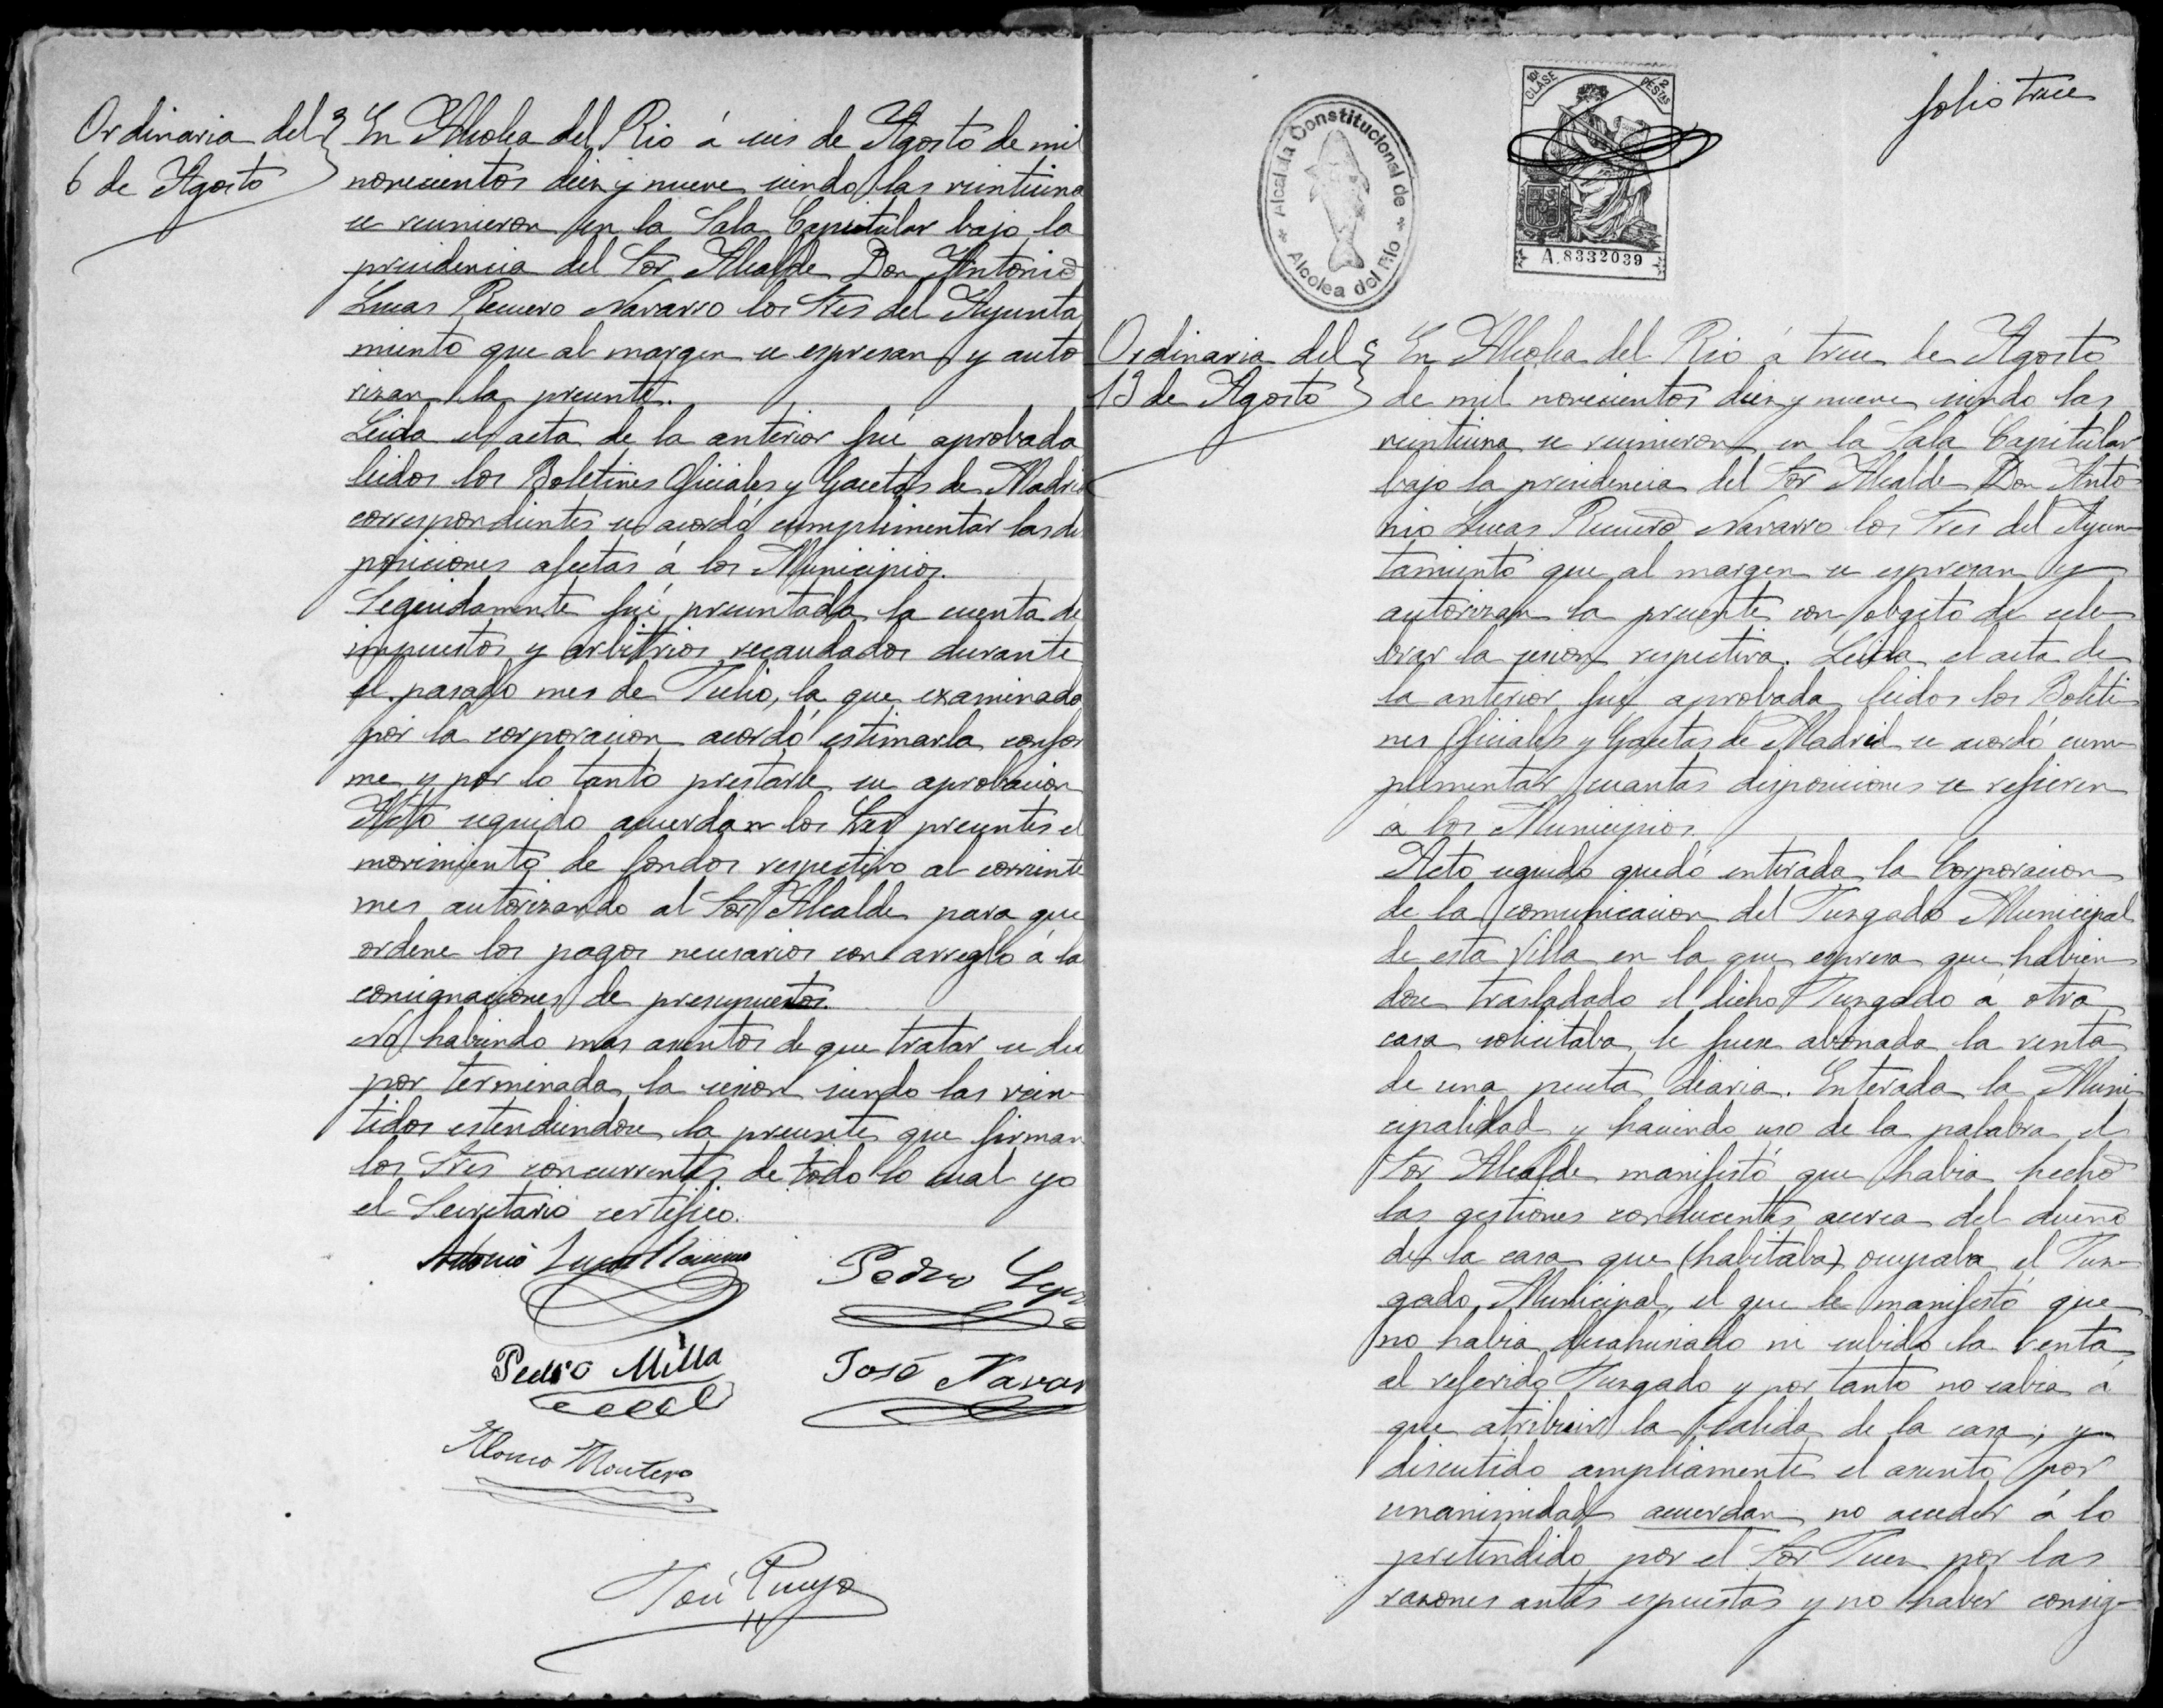 Ordinaria del
6 de Agosto
En Alcolea del Rio á seis de Agosto de mil
novecientos diez y nueve siendo las veintiuna
se reunieron en la Sala Capitular bajo la
presidencia del Sor Alcalde Don Antonio
Lucas Romero Navarro los Sres del Ayunta
miento que al margen se espresan y auto
rizan la presente.
Leida el acta de la anterior fué aprobada
leidos los Boletines Oficiales y Gacetas de Madrid
correspondientes se acordó cumplimentar las dis
posiciones afectas á los Municipios.
Seguidamente fué presentada la cuenta de
impuestos y arbitrios recaudados durante
el pasado mes de Julio, la que examinada
por la corporacion acordó estimarla confor
me y por lo tanto prestarle su aprobacion
Acto seguido acuerdan los Sres presentes el
movimiento de fondos respectivo al corriente
mes autorizando al Sor Alcalde para que
ordene los pagos necesarios con arreglo á la
consignaciones de presupuestos.
No habiendo mas asuntos de que tratar se dió
por terminada la sesion siendo las vein-
tidos estendiendose la presente que firman
los Sres concurrentes de todo lo cual yo
el Secretario certifico.
Antonio Lucas Romero
Pedro
Pedro Milla
José Navar
Alonso Montero
José
folio trece
10ª CLASE
2 PESETAS
A.8332039
Alcaldia Constitucional de
Alcolea del Rio
Ordinaria del
13 de Agosto
En Alcolea del Rio á trece de Agosto
de mil novecientos diez y nueve siendo las
veintiuna se reunieron en la Sala Capitular
bajo la presidencia del Sor Alcalde Don Anto
nio Lucas Romero Navarro los Sres del Ayun-
tamiento que al margen se espresan y
autorizan la presente con objeto de cele-
brar la sesion respectiva. Leida el acta de
la anterior fué aprobada leidos los Boleti-
nes Oficiales y Gacetas de Madrid se acordó cum-
plimentar cuantas disposiciones se refieren
á los Municipios.
Acto seguido quedó enterada la Corporacion
de la comunicacion del Juzgado Municipal
de esta Villa en la que espresa que habien-
dose trasladado el dicho Juzgado á otra
casa solicitaba le fuese abonada la renta
de una peseta diaria. Enterada la Muni-
cipalidad y haciendo uso de la palabra el
Sor Alcalde manifestó que habia hecho
las gestiones conducentes acerca del dueño
de la casa que (habitaba) ocupaba el Juz-
gado Municipal, el que le manifestó que
no habia desahuciado ni subido la renta
al referido Juzgado y por tanto no sabia á
que atribuir la salida de la casa; y
discutido ampliamente el asunto por
unanimidad acuerdan no acceder á lo
pretendido por el Sor Juez por las
razones antes espuestas y no haber consig-